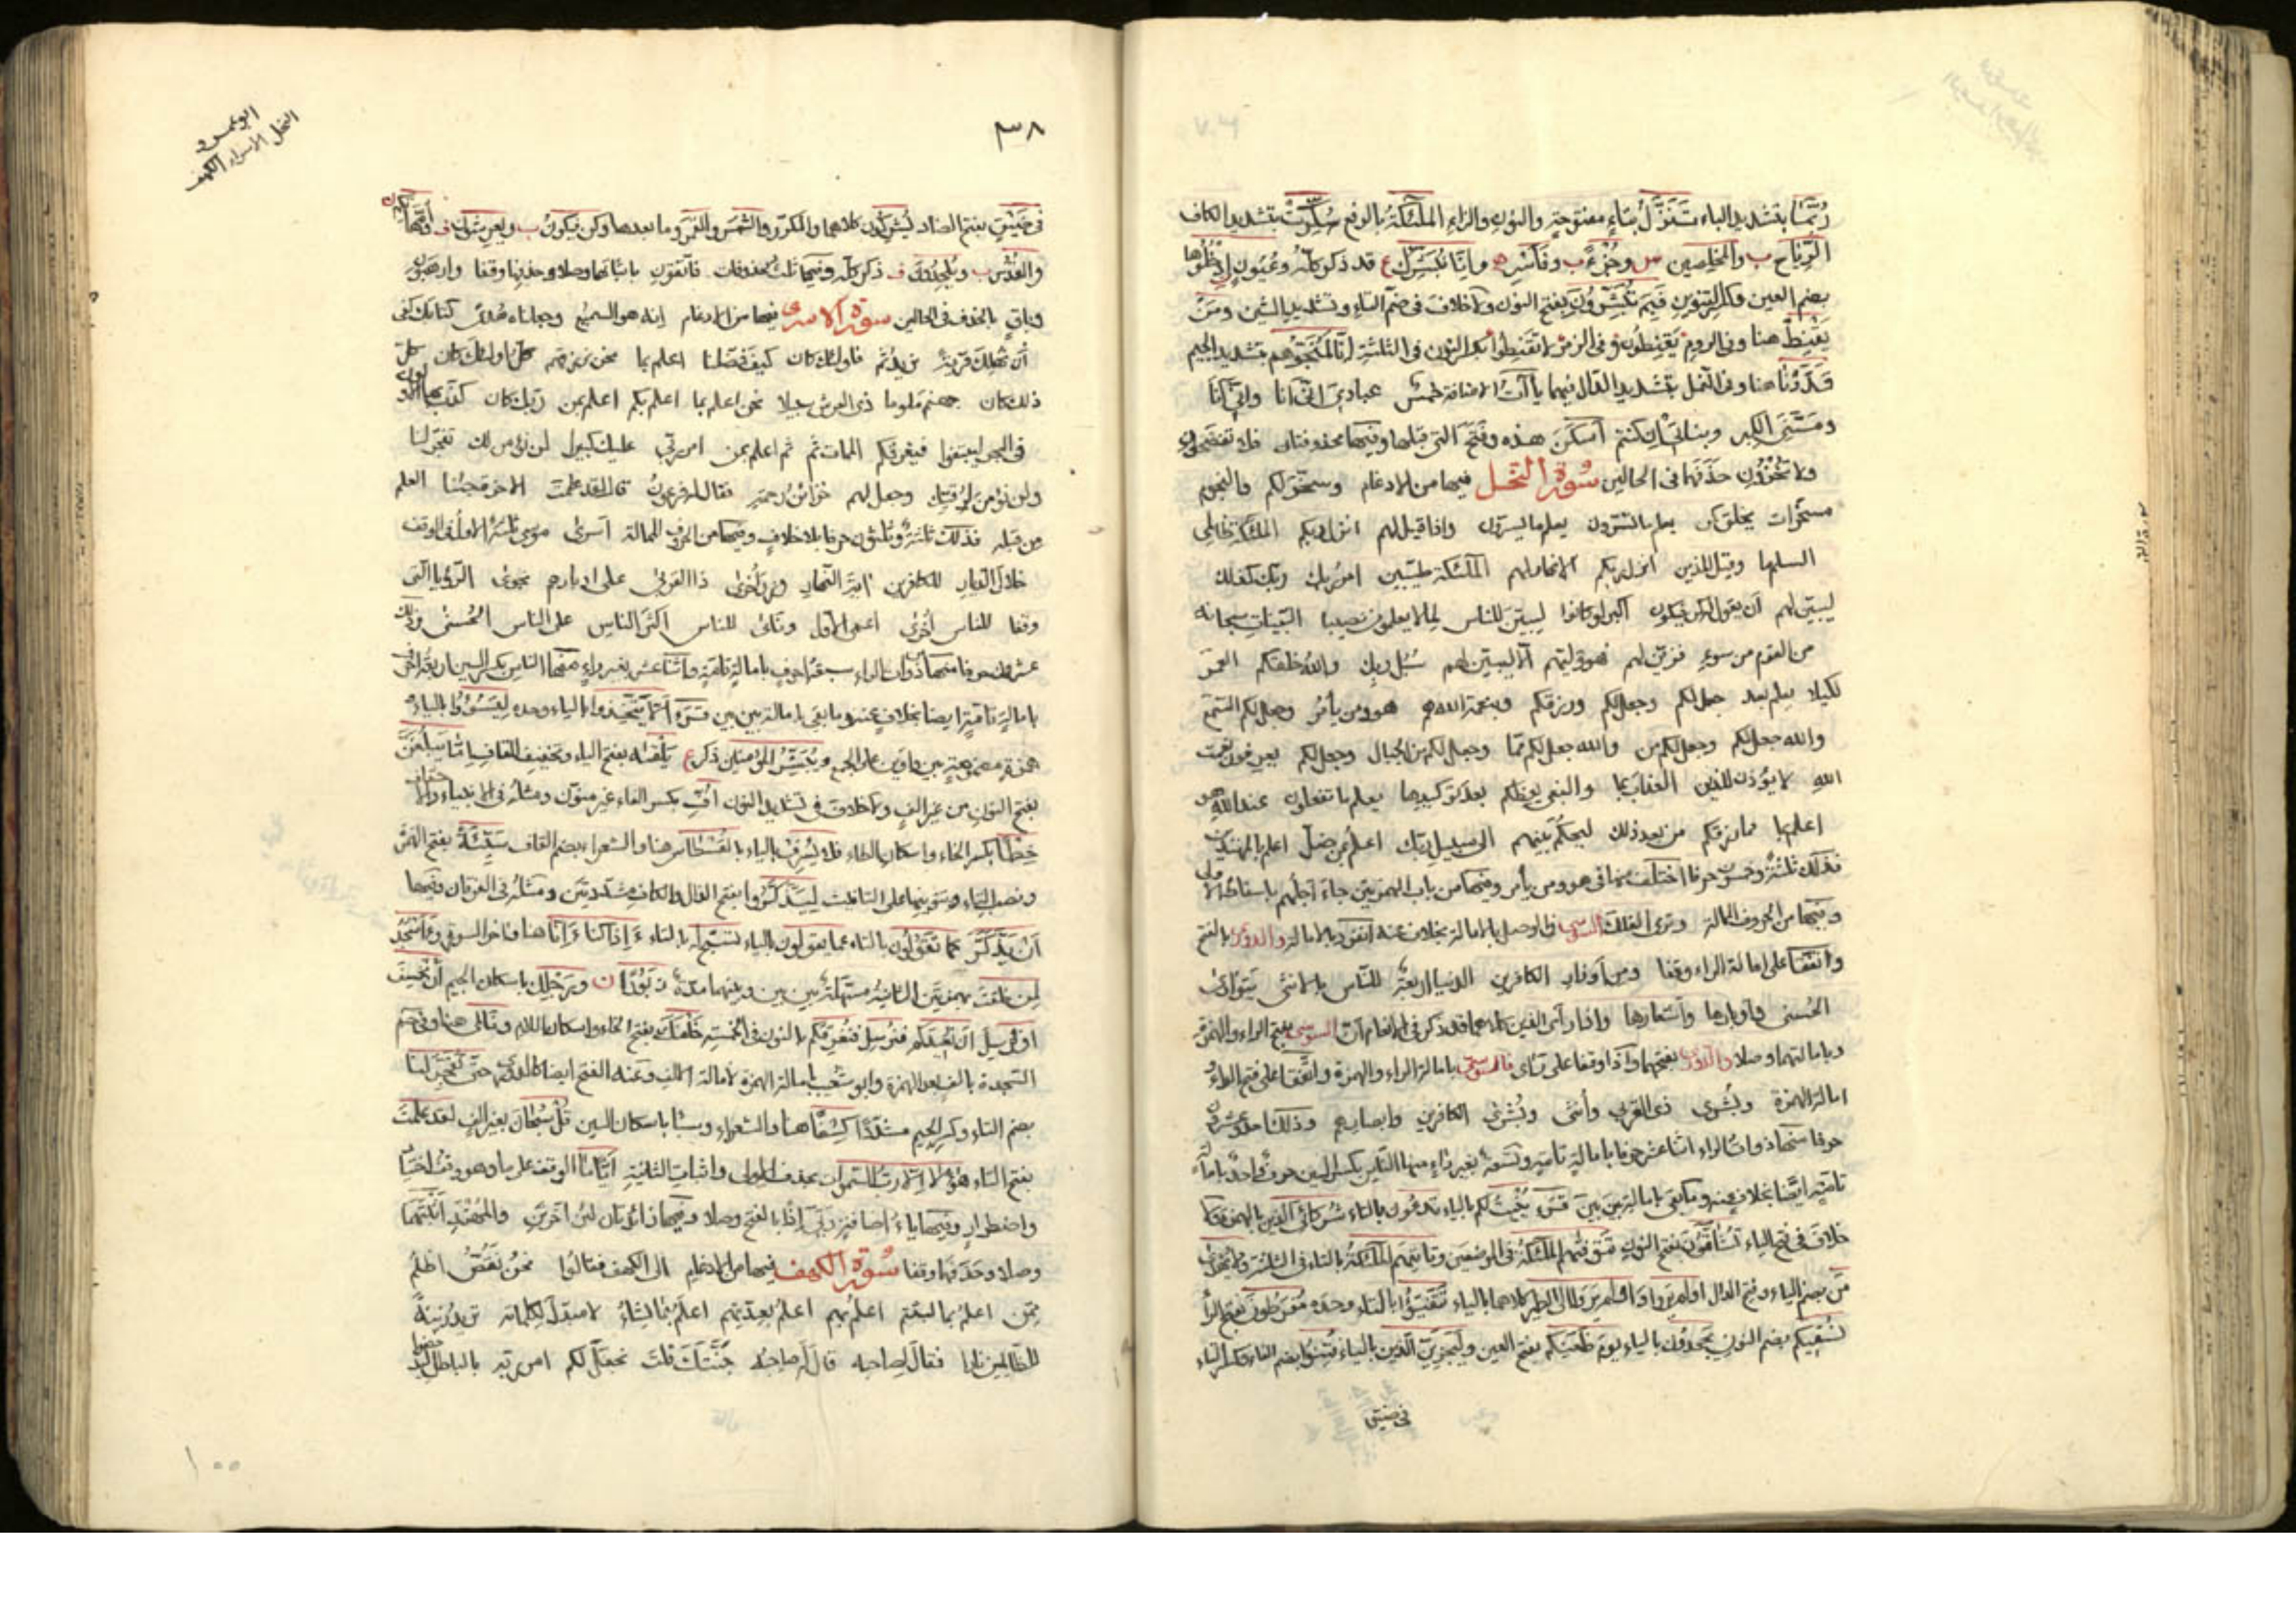 رُبَّمَا بتشديد الباء تَنَزَّلُ بتاءٍ مفتوحةٍ والنون والزاء الملئكةُ بالرفع سُكِّرَتْ بتشديد الكاف
الرِّيَاحَ ب والمخلصين س وجُزْءٌ ب وفَاسْرِ ه وإنّا نُبَشِّرُكَ ع قد ذكر كلّه وعُيُونٍ ادْخُلُوها
بضم العين وكسر التنوين فَبِمَ تُبَشِّرُونَ بفتح النون ولا خلاف في ضم التاء وتشديد الشين ومَنْ
يَقْنِطُ هنا وفي الروم يَقْنِطُونَ وفي الزمر لا تَقْنِطُوا بكسر النون في الثلثة إنّا لَمُنَجُّوهم بتشديد الجيم
قَدَّرْنَا هنا وفي النمل بتشديد الدال فيهما ياآت الاضافة خمس عبادي انّي انا وانّي أنا
ومَسَّنيَ الكبر وبناتي إن كنتم أسكن هذه وفتح التي قبلها وفيها محذوفتان فلا تفضحون
ولا تُخْزُونِ حذفها في الحالين سُورة النحل فيها من الادغام وسخّر لكم والنجوم
مسخّرات يخلق كمن يعلم ما تسرّون يعلم ما يسرون واذا قيل لهم انزل ربكم الملئكة ظالمي
السلم ما وقيل للذين انزل ربكم الانهار لهم الملئكة طيبين امر ربك ربك كذلك
ليبيّن لهم أن يقول له كن فيكون أكبر لو كانوا لِتُبيّنَ للناس لِما لا يعلمون نصيبا البنات سبحانه
من القوم من سوء فزيّن لهم فهو وليّهم إلّا لتبين لهم سُبُل ربِّكِ واللهُ خلقكم العمر
لكيلا يعلم بعد جعل لكم وجعل لكم ورزقكم وبنعمة الله هم هو ومن يأمُرُ وجعل لكم السّمع
والله جعل لكم وجعل لكم من والله جعل لكم مما وجعل لكم من الجبال وجعل لكم يعرفون نعمت
الله لا يؤذن للذين العذاب بما والبغي يعظكم بعد توكيدها يعلم ما تفعلون عند الله هو
اعلم بما مما رزقكم من بعد ذلك ليحكم بينهم الى سبيل ربّك اعلمُ بمن ضلّ اعلم بالمهتدين
فذلك ثلثةٌ وخمسون حرفا اختلف منها في هو ومن يأمر وفيها من باب الهمزتين جاءَ اجلُهم باسقاط الاولى
وفيها من الحروف الممالة وترى الفلك السوسي في الوصل بالامالة بخلاف عنه انفرد بالامالة والدوري بالفتح
واتّفقا على امالة الراء وقفا ومن أوزار الكافرين الدنيا اربعةٌ للنّاس بالانثى يَتوارى
الحُسنى وأوبارها وأشعارها واذا رأى الذين كلاهما قد ذكر في الانعام أنّ السوسي بفتح الراء والهمزة
وبامالتهما وصلا والدوري بفتحهما واذا وقفا على رأى فالسوسي بامالة الراء والهمزة واتّفقا على فتح الراء و
امالة الهمزة وبُشرى ذي القربى وأنثى وبُشرى الكافرين وابصارهم وذلك احد وعشرون
حرفا منها ذوات الراء اثنا عشر حرفا بامالةٍ تامّةٍ وتسعة بغير راءٍ منها الناس بكسر السين حرفٌ واحدٌ بامالة
تامّةٍ ايضا بخلاف عنه وما بقي بامالةٍ بين بين قسَّ يُنْبِتُ لكم بالياء تدعون بالتاء شُركائي الذين بالهمز ولا
خلافَ في فتح الياء تُشَاقُّونَ بفتح النون تَتَوَفّاهم الملئكةُ في الموضعين وتأتيهم الملئكةُ بالتاء في الثلثة ولا يُهْدَى
مَن بضم الياء وفتح الدال اولم يَرَوا والم يَرَوا الى الطير كلاهما بالياء تَتَفَيَّؤُا بالتاء وحده مُفْرَطُونَ بفتح الراء
نُسْقِيكُم بضم النون يَجْحَدُونَ بالياء يوم ظَعَنِكم بفتح العين ولَيَجْزِيَنَّ الّذين بالياء فُتِنُوا بضم الفاء وكسر التاء
في ضيق
٣٨
ابو عمرو
النحل الاسراء الكهف
في ضَيْقٍ بفتح الضاد يُشْرِكُونَ كلاهما والمكرّر والشمسَ والقمرَ وما بعدها وكن فيكونُ ب ويعرشون ف أُمَّهَاتكم ن
والقُدُسِ ب ويُلحِدُونَ ف ذكر كلّه وفيها ثلث محذوفات فاتقون باثباتها وصلا وحذفها وقفا وارهبون
وباقٍ بالحذف في الحالين سورة الاسرى فيها من الادغام انه هو السميع وجعلناه هُدىً كتابك كفى
أن نهلك قريةً نريد ثم فاولئك كان كيف فضّلنا اعلم بما نحن نرزقهم كلُّ اولئك كان كلّ
ذلك كان جهنم ملوما ذي العرش سبيلا نحن اعلم بما اعلم بكم اعلم بمن ربّك كان كذّب بها الاولون
في البحر لتبتغوا فيغرقكم الممات ثم ثم اعلم بمن امر ربّي عليك كبيرا لن نؤمن لك تفجر لنا
ولن نؤمن لِرُقيّك وجعل لهم خزائنُ رحمة فقال له فرعونُ قال لقد علمت الاخرة جئنا العلم
من قبله فذلك ثلثةٌ وثلثون حرفا بلا خلافٍ وفيها من الحروف الممالة أسرى موسى ثلثةٌ الاولُ في الوقف
خلالَ الديار للكافرين آيةَ النهار وِزرَ أُخرى ذا القربى على ادبارهم نجوى الرّؤيا الّتى
وقفا للناس أخرى اعمى الاول ونأى للناس اكثر الناس على الناس الحُسنى وذلك
عشرون حرفا منها ذوات الراء سبعةُ احرفٍ بامالةٍ تامّةٍ واثنا عشر بغير راءٍ منها الناس بكسر السين اربعةُ احرف
بامالةٍ تامّةٍ ايضا بخلاف عنه وما بقي بامالة بين بين قسَّ ألّا يتّخذوا بالياء وحده لِيَسُوؤُا بالياء و
همزة مضمومة بين واوين على الجمع ويُبَشِّرُ المؤمنين ذكر ع يَلْقَاهُ بفتح الياء وتخفيف القاف إمّا يبلُغَنَّ
بفتح النون من غير الفٍ ولا خلاف في تشديد النون أُفِّ بكسر الفاء غير منوّن ومثلُه في الانبياء والاحقاف
خِطْأً بكسر الخاء واسكان الطاء فلا يُسْرِف بالياء بالقُسْطاس هنا والشعراء بضم القاف سَيِّئَةً بفتح الهمزة
ونصب التاء وتنوينها على التانيث لِيَذَّكَّرُوا بفتح الذال والكاف مشدّدتين ومثلُه في الفرقان وفيها
أن يذَّكَّرَ كما تقولون بالتاء عما يقولون بالياء تسبّح له بالتاء ءَإِذا كنا ءَإِنّا هنا واخر السورة ءَأَسجُدُ
لِمَن خلقتَ بهمزتين الثانية مسهّلة بين بين وبينهما مدة زَبُورًا ن ورَجْلِكَ باسكان الجيم أن نَخسِفَ
او نرسل ان نُعيدكم فنرسل فنغرقكم بالنون في الخمسة خَلْفَكَ بفتح الخاء واسكان اللام ونأى هنا وفي حم
السجدة بالف بعد الهمزة وابو شعيب بامالة الهمزة لامالة الالف وعنه الفتح ايضا كالدوري حتى تُفَجِّرَ لنا
بضم التاء وكسر الجيم مشدّدًا كِسْفًا هنا والشعراء وسبا باسكان السين قُل سُبحانَ بغير الفٍ لقد علمتَ
بفتح التاء هؤلا الّا ربُّ السمواتِ بحذف الاولى واثبات الثانية أيًّا ما الوقف على ما وهو وقف اختيار
واضطرارٍ وفيها ياءُ اضافةٍ ربّي إذًا بالفتح وصلا وفيها زائدتان لئن أخّرتنِ والمُهْتَدِ اثبتهما
وصلا وحَذَفَها وقفا سُورة الكهف فيها من الادغام الى الكهف فقالُوا نحنُ نَقُصُّ اظلمُ
مِمّن اعلمُ بما لبثتم اعلم بهم اعلمُ بعِدّتِهم اعلمُ بما لبثُوا لا مبدّلَ لِكلماته تريدُ زينةَ
للظّالمين نارا فقال لصاحبه قال له صاحبُه جَنَّتَكَ قلتَ نجعلَ لكم امر ربّه بالباطل ليُدحضوا
١٠٠